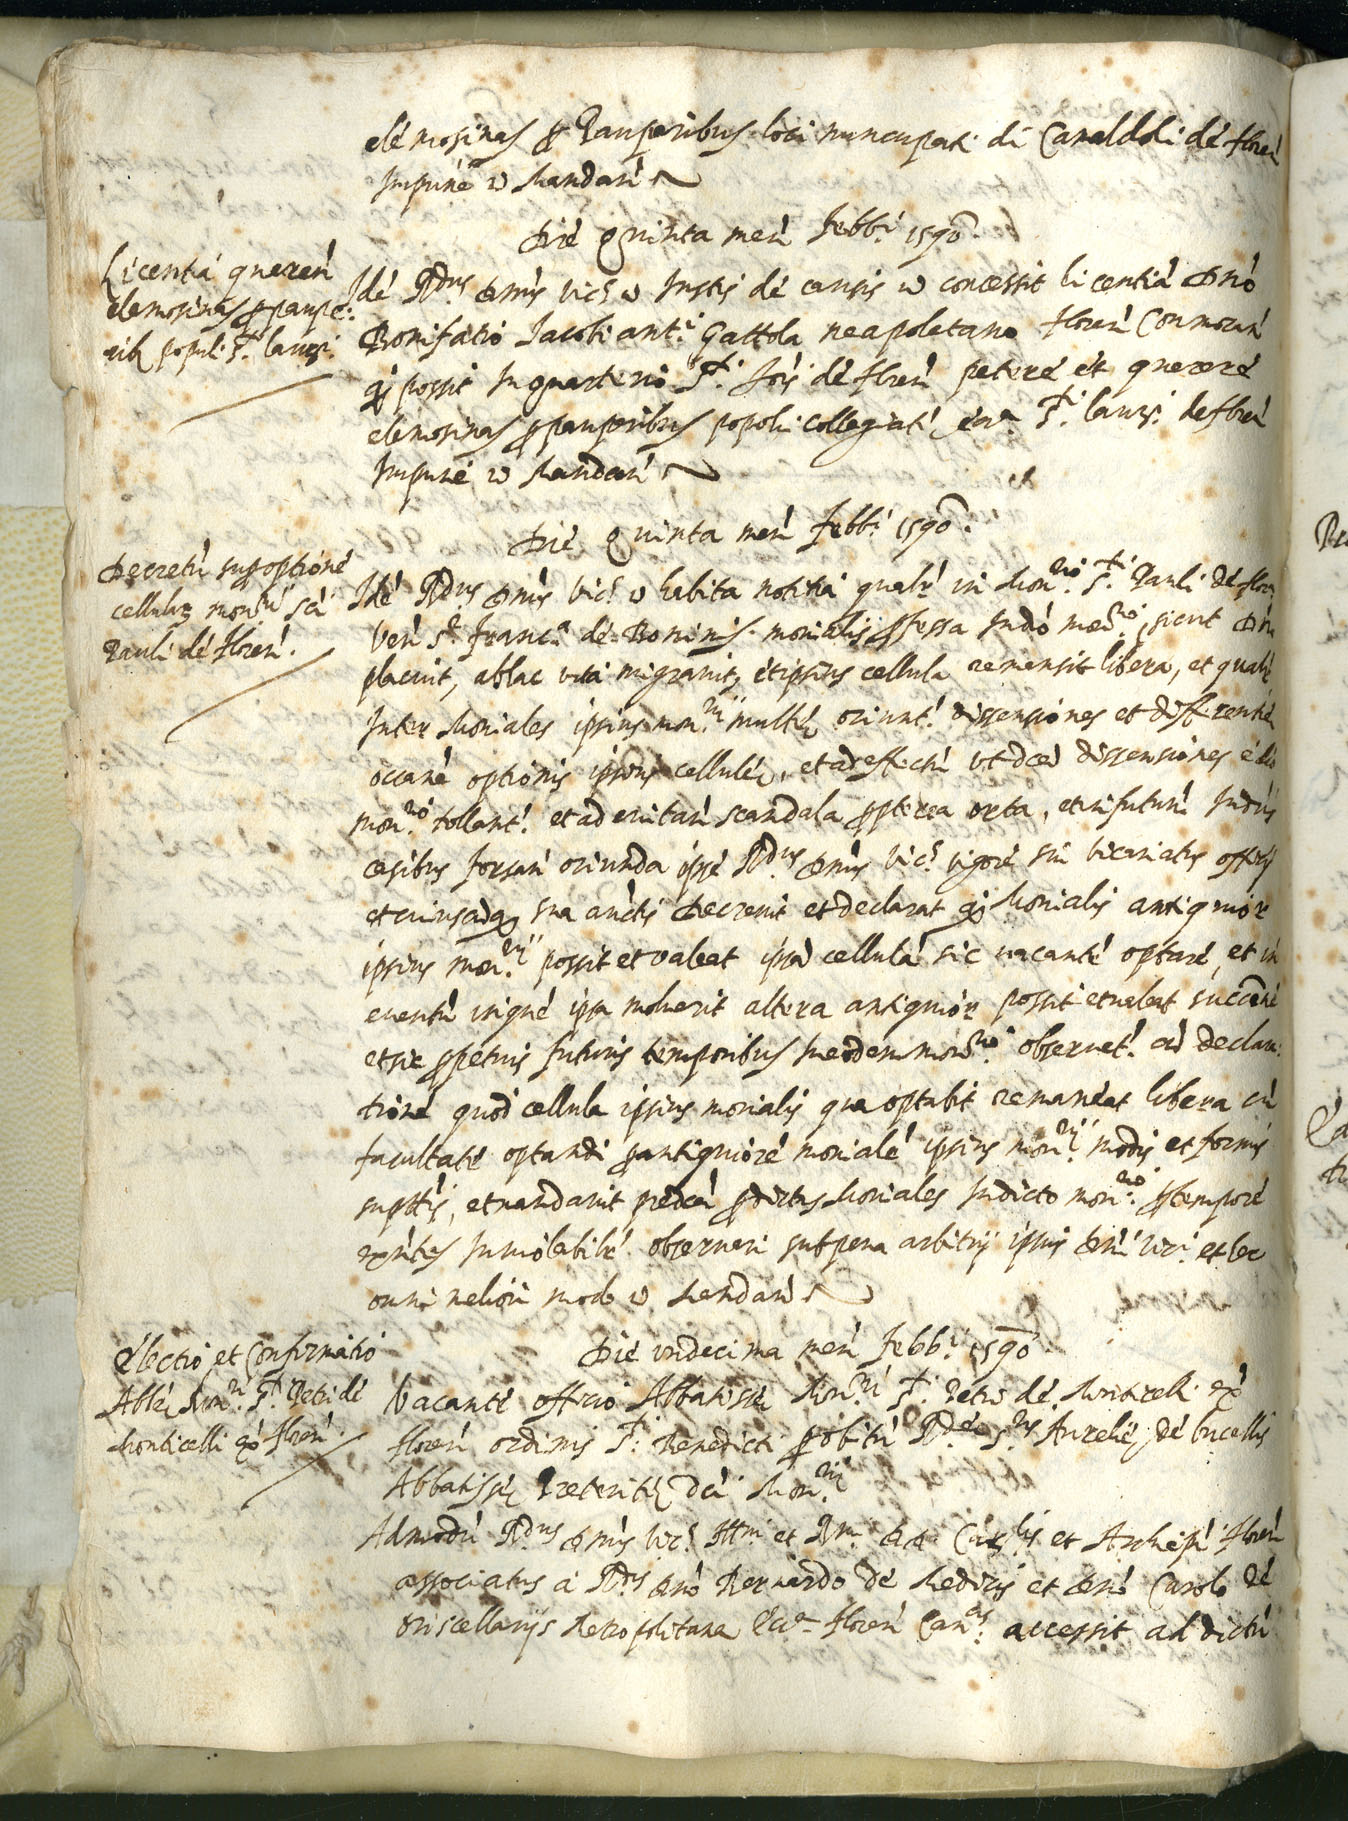 elemosinas p pauperibus loci nuncupati di Camaldoli de floren
Impune &c Mandan
Die quinta men febb. 1590.
Licentia queren
elemosinas p paupe:
rib populi S.ti laurz.
Idē R.dus Dnus vic.s &c Justis de causis &c concessit licentiā Dno
Bonifatio Jacobi ant.i Gattola neapoletano floren Commoran
qd possit In quarterio S.ti Jois de floren petere et querere
elemosinas p pauperibus popoli collegiate ecc.a S.ti laurz. de floren
Impune &c Mandan
Die Quinta men febb. 1590.
Decretū sup optione
cellular mon.rii Sci
Pauli de floren.
Idē R.dus Dnus vic.s &c habita notitia qualr in Mon.rio S.ti Pauli de floren
Ven S.r franc.a de Boninis monialis pfessa In dō mon.rio, sicut Dno
placuit, ab hac vita migravit, et ipsius cellula remansit libera, et qualr
Inter Moniales ipsius mon.rii multe oriunt.r dissensiones et differentie
occane optionis ipsius cellule, et ad effectū ut dce dissensiones e dco
mon.rio tollant.r et ad evitan scandala ppterea orta, et in futurū In dus
casibus forsan oriunda ipse R.dus Dnus vic.s vigore sui vicariatus offitij
et cuiusqq sua auctē Decrevit et declarat qd Monialis antiquior
ipsius mon.rii possit et valeat ipsā cellulā sic vacantē optare, et in
eventū inque ipsa noluerit altera antiquior possit et valeat succēne
et sic ppetuis futuris temporibus In eodem mon.rio observet.r cū declara:
tione quod cellula ipsius monialis que optabit remaneat libera cū
facultate optandi p antiquiorē monialē ipsius mon.rii modis et formis
supttis, et mandavit predca p dictas Moniales In dicto mon.rio p tempore
exntes Inviolabilr observari sub pena arbitrij ipsius Dni vic.i et hec
omni meliori modo &c Mandan
Die undecima men febb. 1590.
Electio et Confirmatio
Abbe Mon.rii S.ti Petri de
Monticelli ex.a floren.
Vacante officio Abbatisse Mon.rii S.ti Petri de Monticelli ex.a
floren ordinis S.ti Benedicti p obitū R.de S.ris Aurelie de bucellis
Abbatisse Preterite dci Mon.rii
Admodū R.dus Dnus vic.s Ill.mi et R.mi DD Car.lis et Archiepi floren
associatus a R.dis Dno Bernardo de Medicis et Dno Carolo de
Oricellarijs Metropolitane Ecc.e floren Can.cis accessit ad dictū